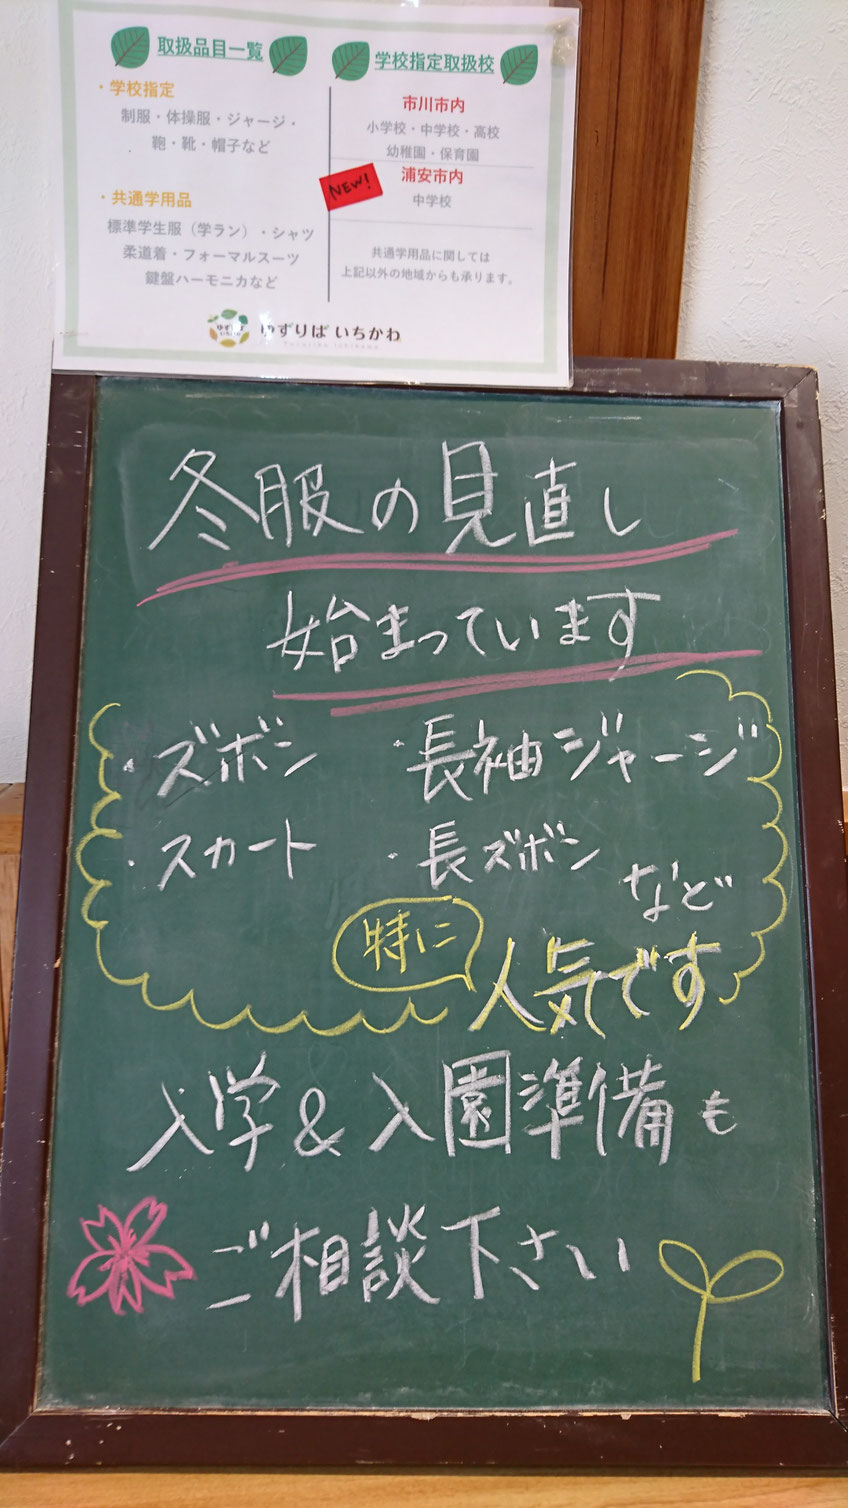 取扱品目一覧
・学校指定
制服・体操服・ジャージ・
鞄・靴・帽子など
・共通学用品
標準学生服（学ラン）・シャツ
柔道着・フォーマルスーツ
鍵盤ハーモニカなど
学校指定取扱校
市川市内
小学校・中学校・高校
幼稚園・保育園
NEW!
浦安市内
中学校
共通学用品に関しては
上記以外の地域からも承ります。
ゆずりば いちかわ
冬服の見直し
始まっています
・ズボン ・長袖ジャージ
・スカート ・長ズボン
など
特に
人気です
入学&入園準備も
ご相談下さい